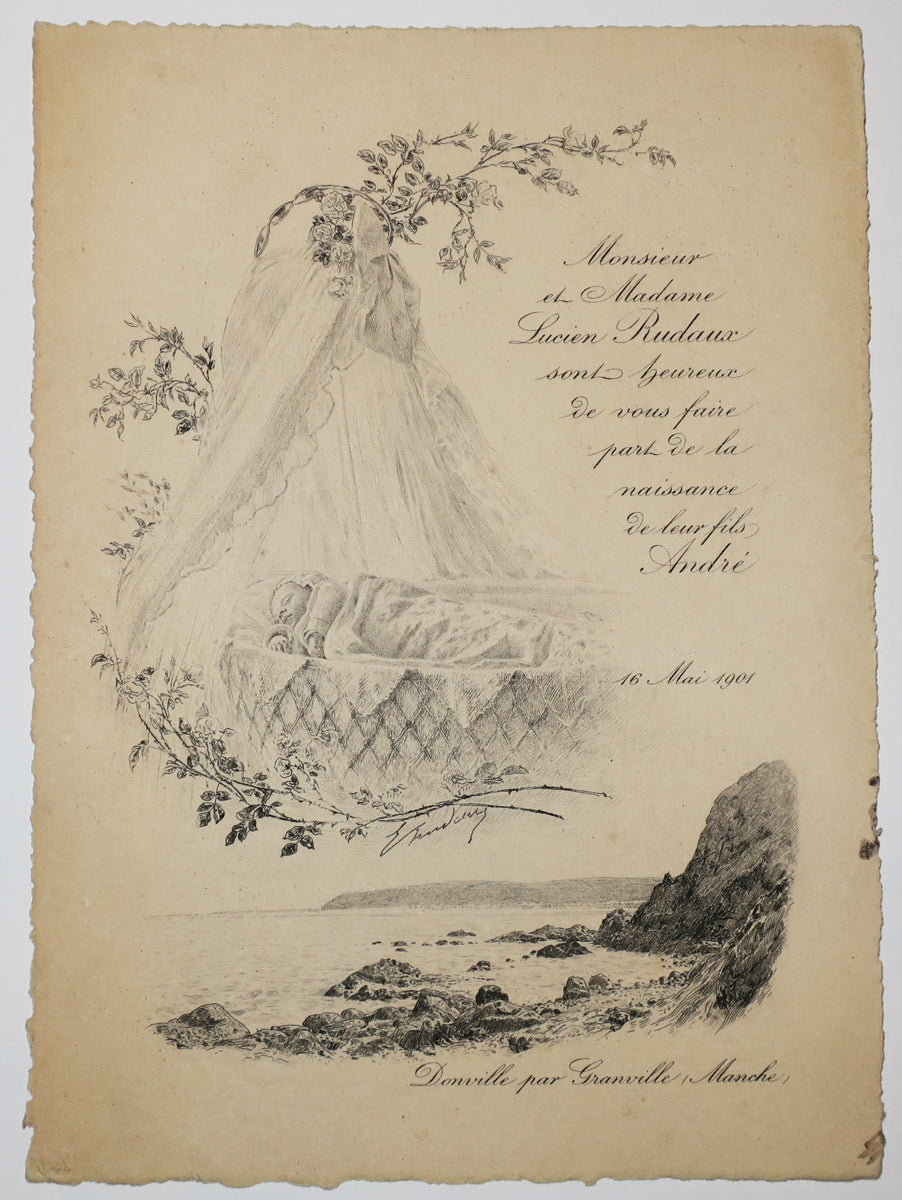 Monsieur
et Madame
Lucien Rudaux
sont heureux
de vous faire
part de la
naissance
de leur fils
André
16 Mai 1901
E Rudaux
Donville par Granville (Manche)